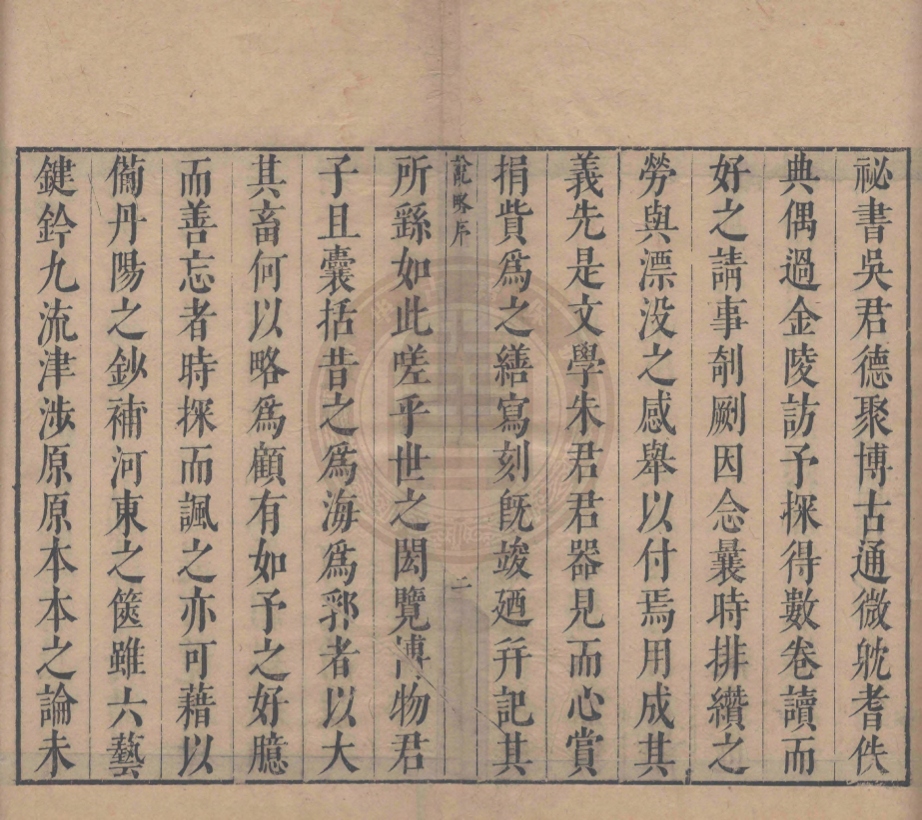 祕書吳君德聚博古通微耽耆佚
典偶過金陵訪予探得數卷讀而
好之請事剞劂因念曩時排纘之
勞與漂没之感舉以付焉用成其
義先是文學朱君君器見而心賞
捐貲爲之繕寫刻旣竣廼幷記其
說略序
二
所繇如此嗟乎世之閎覽博物君
子且囊括昔之爲海爲郛者以大
其畜何以略爲顧有如予之好臆
而善忘者時探而諷之亦可藉以
僃丹陽之鈔補河東之篋雖六藝
鍵鈐九流津涉原原本本之論未